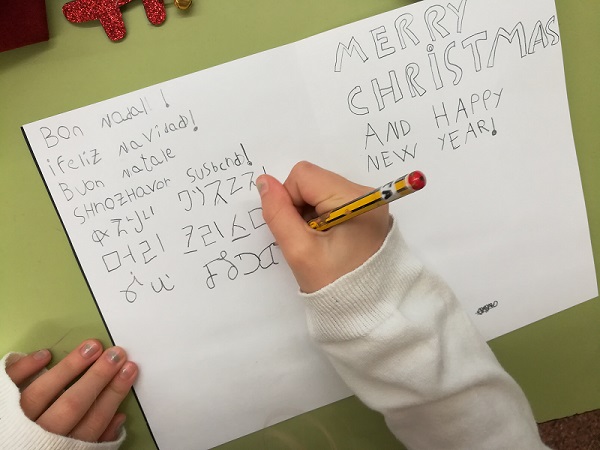 BON Nadal!!
¡Feliz Navidad!
Buon Natale
SHNOZHAVOR Susbcnd!
머리 크리스
MERRY
CHRiSTMAS
AND HAPPY
NEW YEAR!